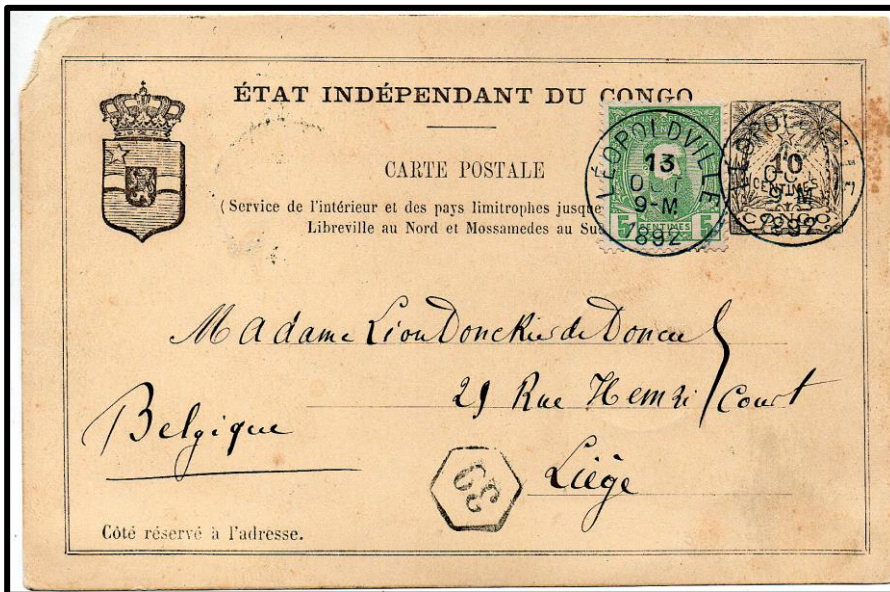 ÉTAT INDÉPENDANT DU CONGO
CARTE POSTALE
(Service de l'intérieur et des pays limitrophes jusque
Libreville au Nord et Mossamedes au Su
LÉOPOLDVILLE
13
OCT
9-M
1892
5 5
CENTIMES
10
CENTIMES
9-M
CONGO
1892
Madame Léon Donckier de Donceel
Rue Hemricourt
Belgique
Liège
39
Côté réservé à l'adresse.